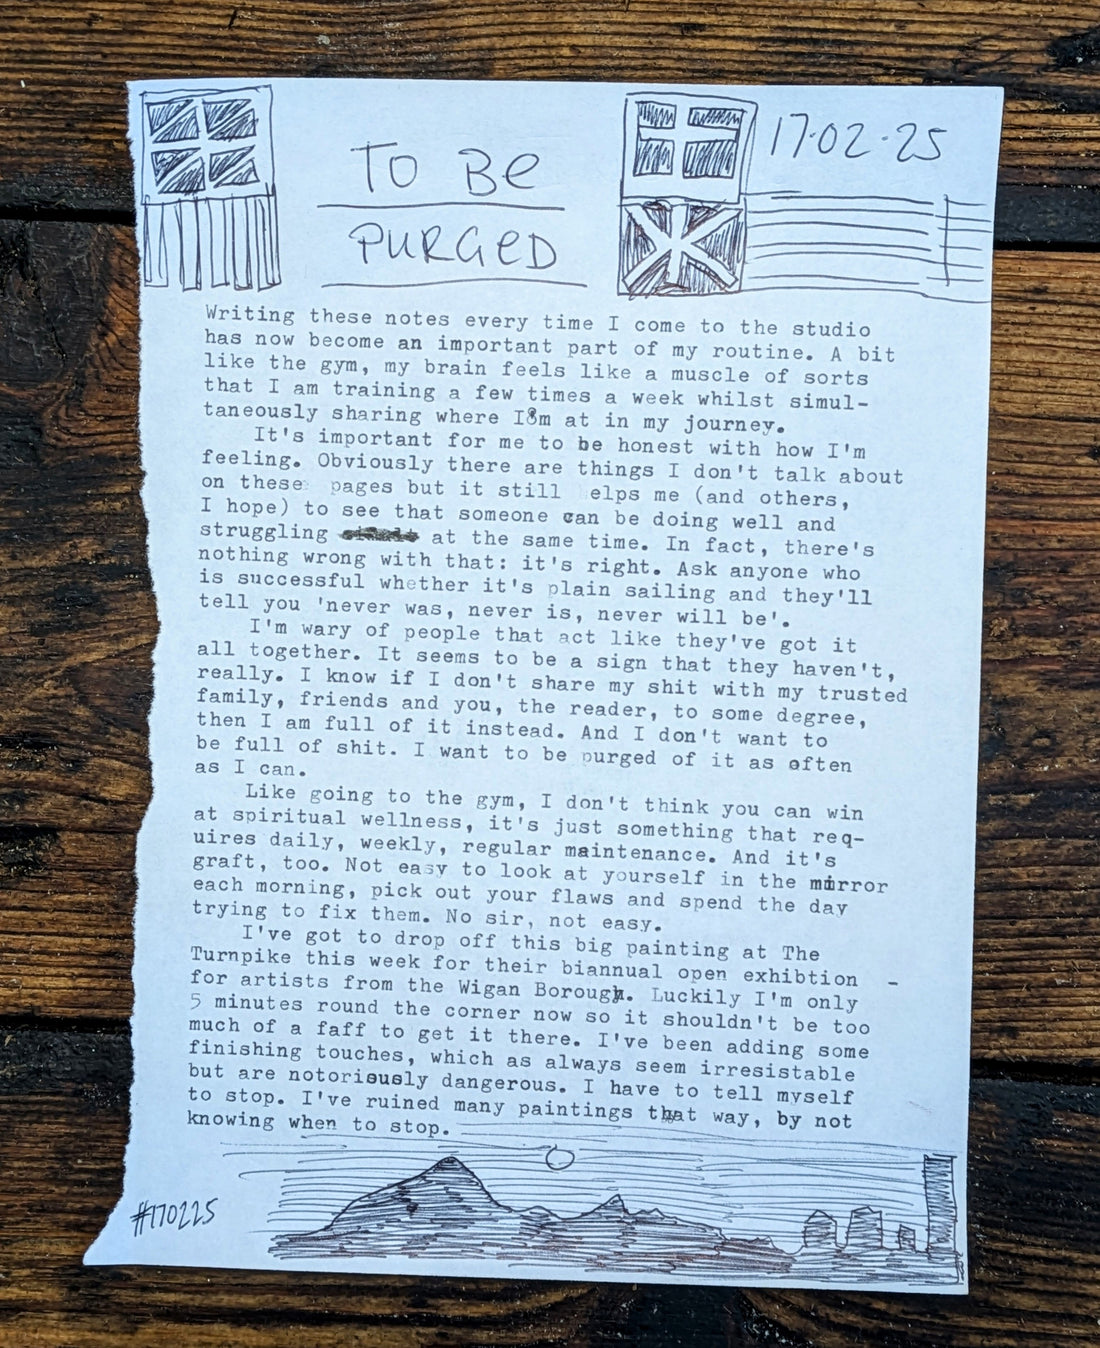 TO BE
PURGED
17·02·25
Writing these notes every time I come to the studio
has now become an important part of my routine. A bit
like the gym, my brain feels like a muscle of sorts
that I am training a few times a week whilst simul-
taneously sharing where I8m at in my journey.
It's important for me to be honest with how I'm
feeling. Obviously there are things I don't talk about
on these pages but it still elps me (and others,
I hope) to see that someone can be doing well and
struggling at the same time. In fact, there's
nothing wrong with that: it's right. Ask anyone who
is successful whether it's plain sailing and they'll
tell you 'never was, never is, never will be'.
I'm wary of people that act like they've got it
all together. It seems to be a sign that they haven't,
really. I know if I don't share my shit with my trusted
family, friends and you, the reader, to some degree,
then I am full of it instead. And I don't want to
be full of shit. I want to be purged of it as often
as I can.
Like going to the gym, I don't think you can win
at spiritual wellness, it's just something that req-
uires daily, weekly, regular maintenance. And it's
graft, too. Not easy to look at yourself in the mirror
each morning, pick out your flaws and spend the day
trying to fix them. No sir, not easy.
I've got to drop off this big painting at The
Turnpike this week for their biannual open exhibtion -
for artists from the Wigan Borough. Luckily I'm only
5 minutes round the corner now so it shouldn't be too
much of a faff to get it there. I've been adding some
finishing touches, which as always seem irresistable
but are notoriously dangerous. I have to tell myself
to stop. I've ruined many paintings that way, by not
knowing when to stop.
#170225